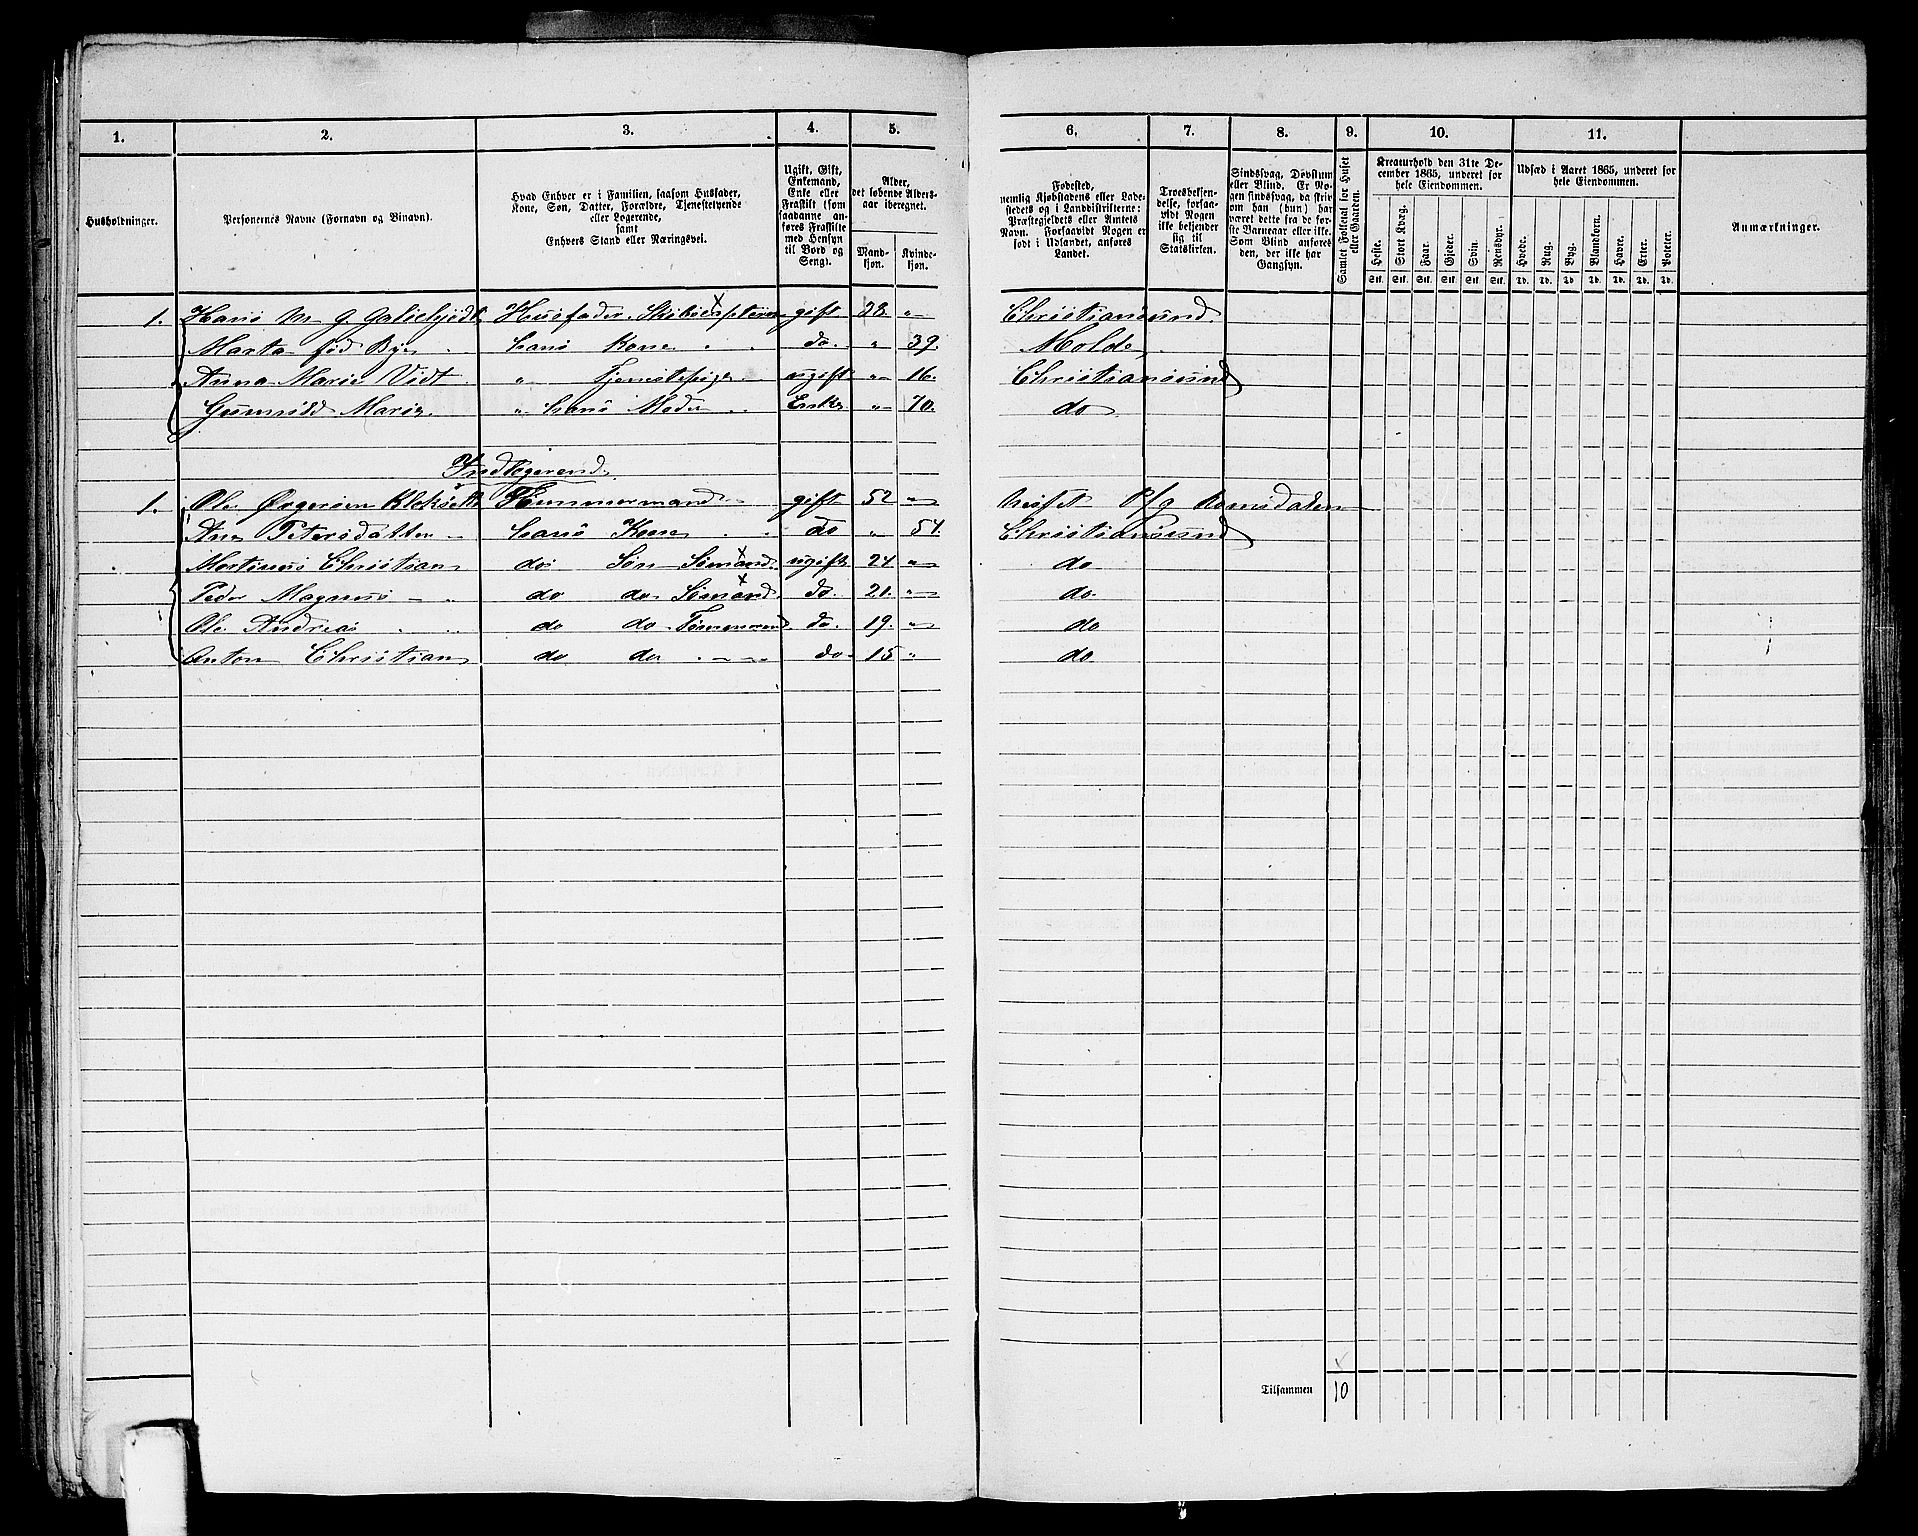 1. 2. 3. 4. 5. 6. 7. 8. 9. 10. 11.
Husholdninger.
Personernes Navne (Fornavn og Binavn).
Hvad Enhver er i Familien, saasom Husfader,
Kone, Søn, Datter, Forældre, Tjenestetyende
eller Logerende,
samt
Enhvers Stand eller Næringsvei.
Ugift, Gift,
Enkemand,
Enke eller
Fraskilt (som
saadanne an-
føres Fraskilte
med Hensyn
til Bord og
Seng).
Alder,
det løbende Alders-
aar iberegnet.
Mand-
kjøn.
Kvinde-
kjøn.
Fødested,
nemlig Kjøbstadens eller Lade-
stedets og i Landdistrikterne:
Præstegjeldets eller Amtets
Navn. Forsaavidt Nogen er
født i Udlandet, anføres
Landet.
Troesbekjen-
delse, forsaa-
vidt Nogen
ikke bekjender
sig til
Statskirken.
Sindssvag, Døvstum
eller Blind. Er No-
gen sindssvag, da skriv
om han (hun) har
været dette fra de for-
ste Barneaar eller ikke.
Som Blind anføres
den, der ikke har
Gangsyn.
Samlet Folketal for Huset
eller Gaarden.
Kreaturhold den 31te De-
cember 1865, underet for
hele Eiendommen.
Heste. Stort Kvæg. Faar. Gjeder. Svin. Rensdyr.
Stk. Stk. Stk. Stk. Stk. Stk.
Udsæd i Aaret 1865, underet for
hele Eiendommen.
Hvede. Rug. Byg. Blandkorn. Havre. Erter. Poteter.
Td. Td. Td. Td. Td. Td. Td.
Anmærkninger.
1. Hans M G Husfader gift 28 " Christiansund.
Marta fød Bye hans Kone do. " 39. Molde
Anna Marie Vidt " Tjenestepige ugift " 16. Christiansund
Gunnild Marie " hans Moder Enke " 70. do
Indlogerend.
1. Ole Tømmermand gift 52 " Pr/g Romsdalen
Ane Petersdatter hans Kone do " 54. Christiansund
Martinus Christian do Søn Sømand ugift 24 " do
Peder Magnus do do Sømand do. 21. " do
Ole Andreas do do Tømmermd do. 19. " do
Anton Christian do do do 15 " do
Tilsammen 10